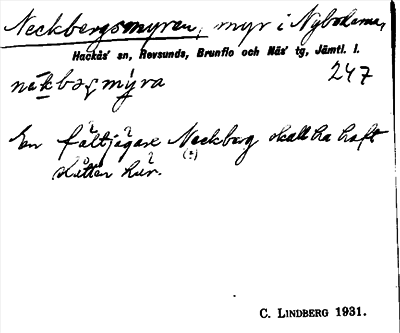 Neckbergsmyren, myr i Nybodarna,
Hackås' sn, Revsunds, Brunflo och Näs' tg, Jämtl. l.
247
En fältjägare Neckberg skall ha haft
slåtter här.
C. LINDBERG 1931.